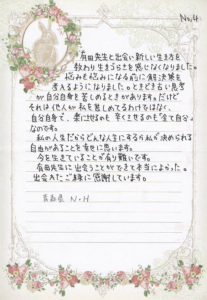 No.4
有田先生と出会い新しい生き方を
教わり生きづらさを感じなくなりました。
悩みも悩みになる前に解決策を
考えるようになりました。ときどきある思考
が自分自身を苦しめるときがあります。だけど
それは他人が私を苦しめてるわけではなく、
自分自身で、楽にさせるのも辛くさせるのも全て自分
なのです。
私の人生だからどんな人生にするか私が決められる
自由があることを幸せに思います。
今を生きていることが有り難いです。
有田先生に出会うことができて本当によかった。
出会えたご縁に感謝しています。
青森県 N・H